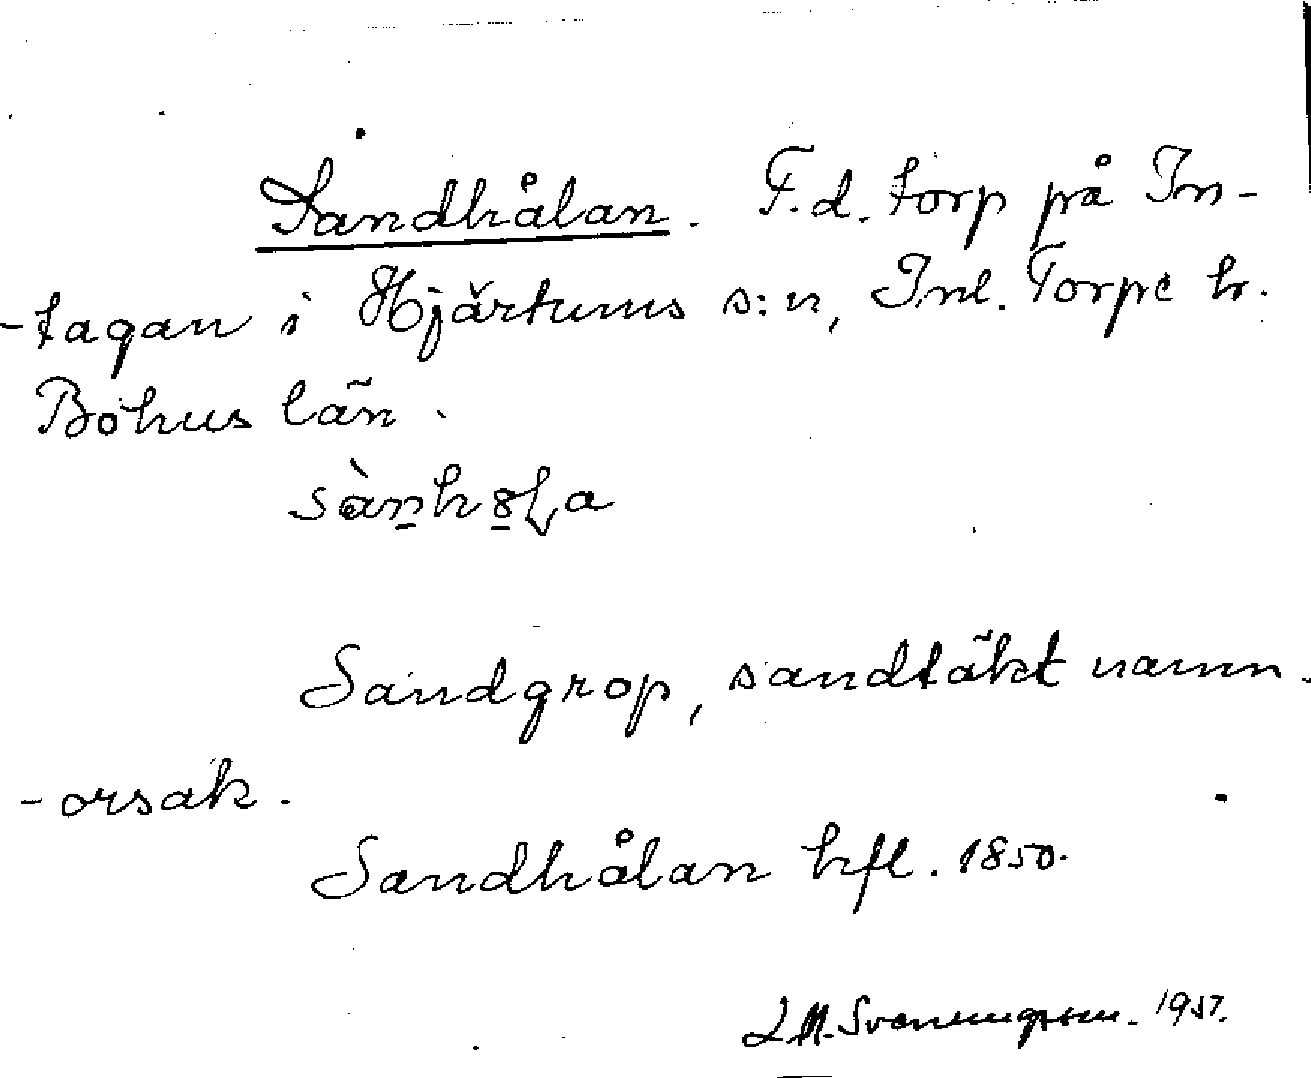 Sandhålan. F.d. torp på In-
-tagan i Hjärtums s:n, Inl. Torpe hr.
Bohus län.
Sandgrop, sandtäkt namn-
-orsak.
Sandhålan hfl. 1850.
L.M. Svenungsson. 1957.